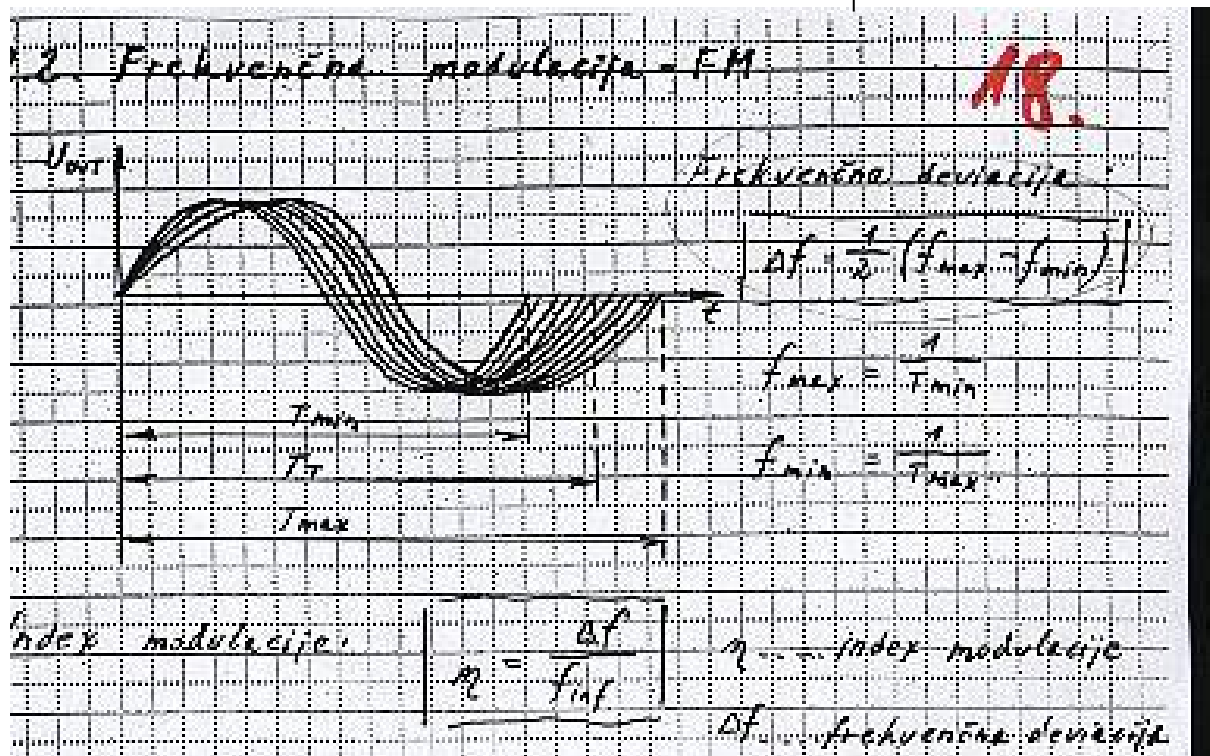 2. Frekvenčna modulacija - FM
18.
U_OUT
Frekvenčna deviacija
Δf = 1/2 (f_max - f_min)
t
f_max = 1/T_min
T_min
f_min = 1/T_max
T_T
T_max
ndex modulacije:
η = Δf/f_inf
η .... index modulacije
Δf .... frekvenčna deviacija